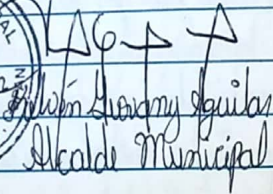 Edwin Giovany Aguilar
Alcalde Municipal